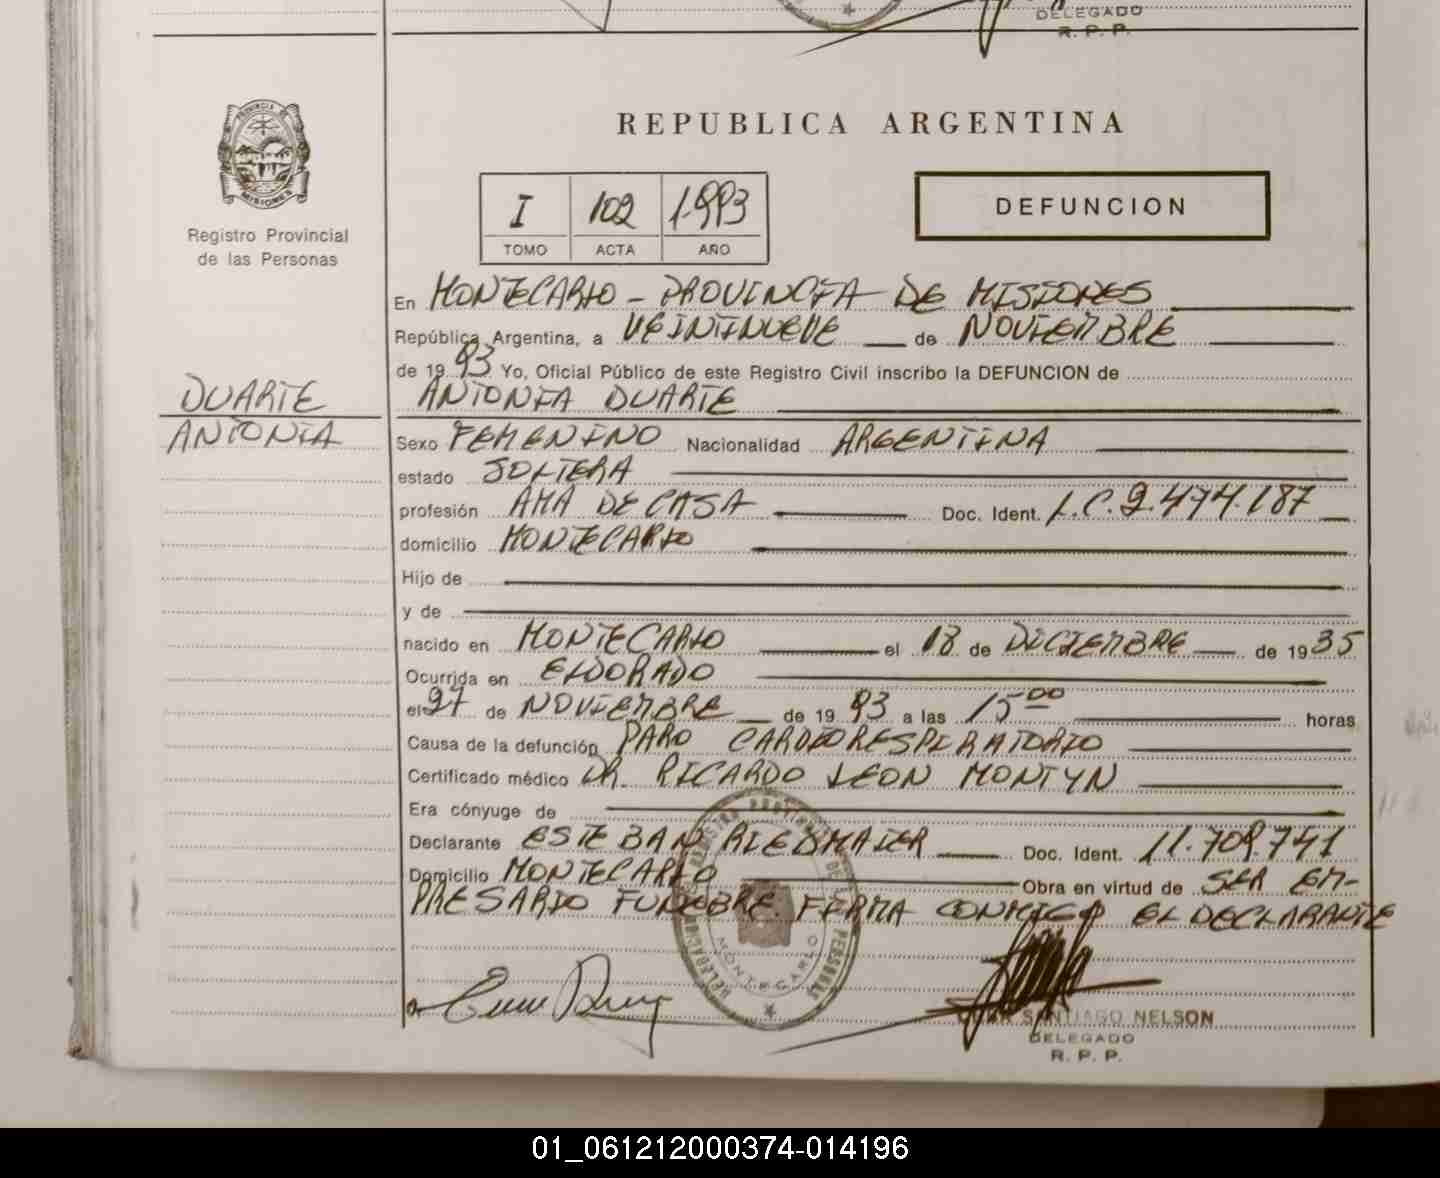 DELEGADO
R. P. P.
PROVINCIA DE
MISIONES
Registro Provincial
de las Personas
REPUBLICA ARGENTINA
I 102 1.993
TOMO ACTA AÑO
DEFUNCION
En MONTECARLO - PROVINCIA DE MISIONES
República Argentina, a VEINTINUEVE de NOVIEMBRE
de 1993 Yo, Oficial Público de este Registro Civil inscribo la DEFUNCION de
DUARTE
ANTONIA DUARTE
ANTONIA
Sexo FEMENINO Nacionalidad ARGENTINA
estado SOLTERA
profesión AMA DE CASA Doc. Ident. L.C. 2.474.187
domicilio MONTECARLO
Hijo de
y de
nacido en MONTECARLO el 18 de DICIEMBRE de 1935
Ocurrida en ELDORADO
el 27 de NOVIEMBRE de 1993 a las 15 00 horas
Causa de la defunción PARO CARDIORESPIRATORIO
Certificado médico DR. RICARDO LEON MONTYN
Era cónyuge de
Declarante ESTEBAN RIEDMAIER Doc. Ident. 11.709.741
Domicilio MONTECARLO Obra en virtud de SER EM-
PRESARIO FUNEBRE. FIRMA CONMIGO EL DECLARANTE
MONTECARLO
SANTIAGO NELSON
DELEGADO
R. P. P.
01_061212000374-014196